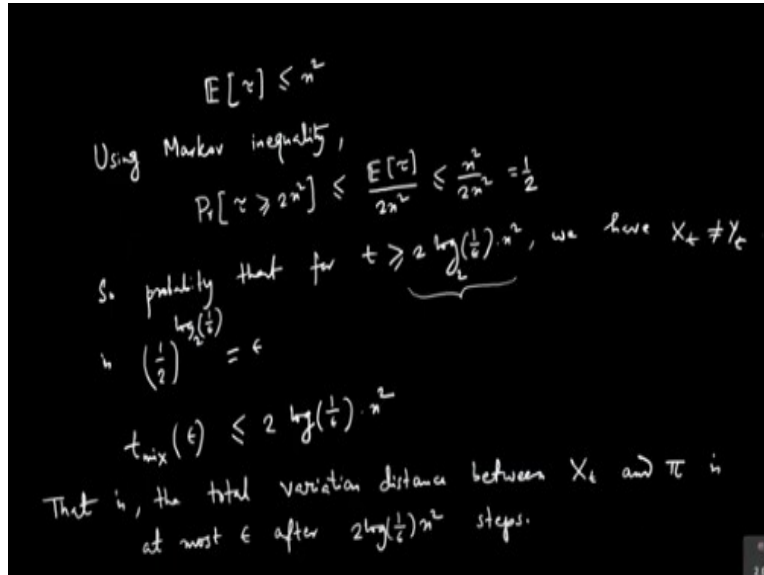 E[τ] ≤ n²
Using Markov inequality,
Pr[τ ≥ 2n²] ≤ E[τ]/2n² ≤ n²/2n² = 1/2
So probability that for t ≥ 2 log₂(1/ϵ)·n², we have Xₜ ≠ Yₜ
is (1/2)^log₂(1/ϵ) = ϵ
t_mix(ϵ) ≤ 2 log(1/ϵ)·n²
That is, the total variation distance between Xₜ and π is
at most ϵ after 2log(1/ϵ)n² steps.